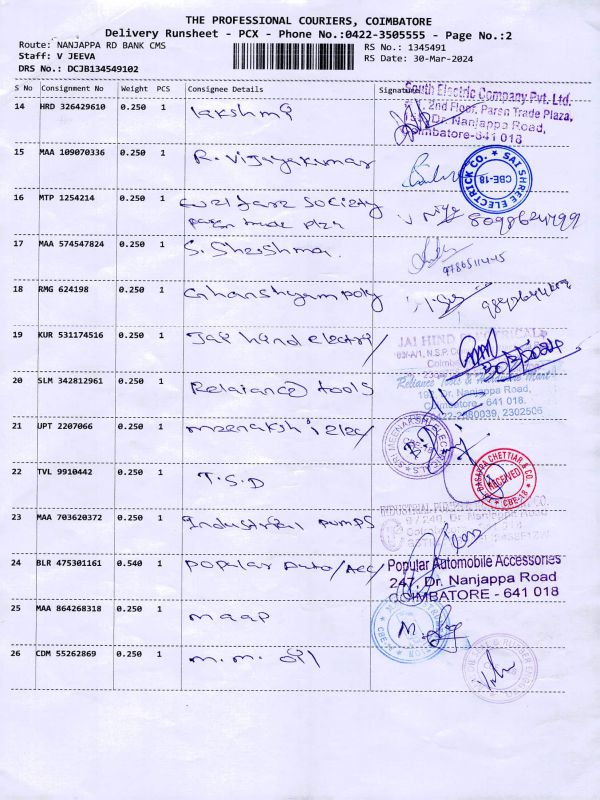 THE PROFESSIONAL COURIERS, COIMBATORE
Delivery Runsheet - PCX - Phone No.:0422-3505555 - Page No.:2
Route: NANJAPPA RD BANK CMS
RS No.: 1345491
Staff: V JEEVA
RS Date: 30-Mar-2024
DRS No.: DCJB134549102
S No Consignment No Weight PCS Consignee Details Signature
14 HRD 326429610 0.250 1 Lakshmi
South Electric Company Pvt. Ltd.
2nd Floor, Paren Trade Plaza,
Dr. Nanjappa Road,
Coimbatore-641 018
15 MAA 109070336 0.250 1 R. Vijayakumar
SAI SHREE ELECTRICK CO. CBE-18
16 MTP 1254214 0.250 1 welfare Society
paren trade plza
17 MAA 574547824 0.250 1 S. Shershma.
9786511445
18 RMG 624198 0.250 1 Ghanshyam poly
19 KUR 531174516 0.250 1 Jai hind electri/
JAI HIND
20 SLM 342812961 0.250 1 Relaiance tools
Reliance Tools & Mart
Dr. Nanjappa Road,
Coimbatore - 641 018.
0422-2380039, 2302506
21 UPT 2207066 0.250 1 meenakshi elec/
SRI MEENAKSHI ELEC
22 TVL 9910442 0.250 1 T.S.D
DASAPPA CHETTIAR & CO.
RECEIVED
CBE-18
23 MAA 703620372 0.250 1 Industrial pumps
INDUSTRIAL CO.
Dr. Nanjappa Road
24 BLR 475301161 0.540 1 popular Auto/Acc/
Popular Automobile Accessories
247, Dr. Nanjappa Road
COIMBATORE - 641 018
25 MAA 864268318 0.250 1 maap
CBE-18
26 CDM 55262869 0.250 1 m.m. oil